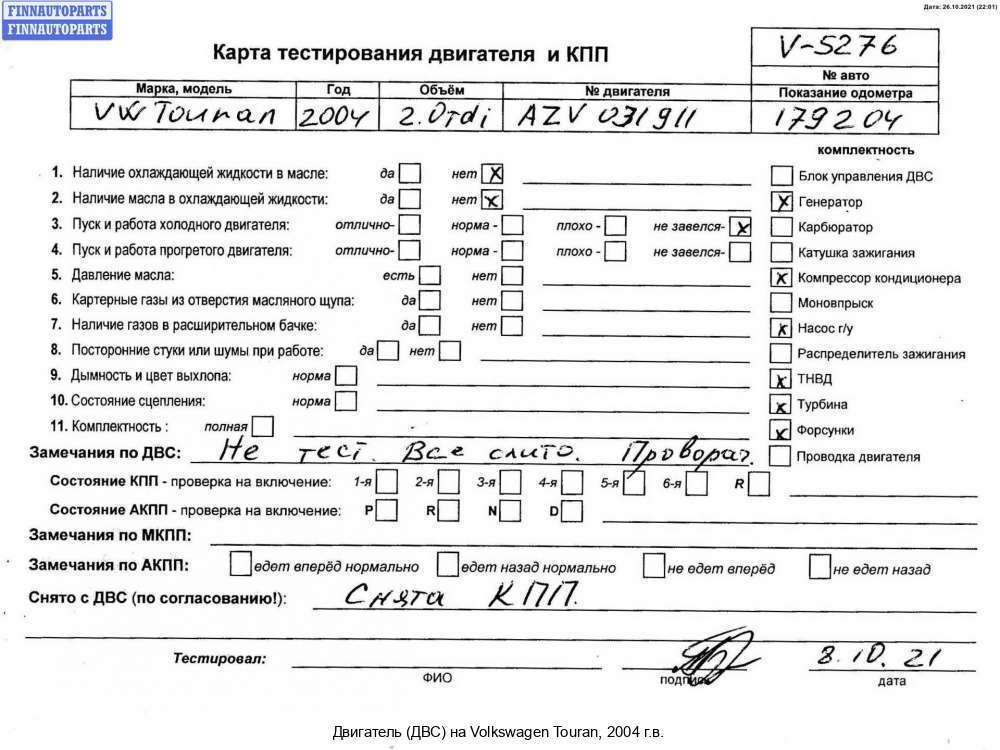 FINNAUTOPARTS
FINNAUTOPARTS
Дата: 26.10.2021 (22:01)
Карта тестирования двигателя и КПП
V-5276
№ авто
Марка, модель Год Объём № двигателя Показание одометра
VW Touran 2004 2.0tdi AZV 031911 179204
комплектность
1. Наличие охлаждающей жидкости в масле: да нет x
Блок управления ДВС
2. Наличие масла в охлаждающей жидкости: да нет x
x Генератор
3. Пуск и работа холодного двигателя: отлично- норма - плохо - не завелся- x
Карбюратор
4. Пуск и работа прогретого двигателя: отлично- норма - плохо - не завелся-
Катушка зажигания
5. Давление масла: есть нет
x Компрессор кондиционера
6. Картерные газы из отверстия масляного щупа: да нет
Моновпрыск
7. Наличие газов в расширительном бачке: да нет
x Насос г/у
8. Посторонние стуки или шумы при работе: да нет
Распределитель зажигания
9. Дымность и цвет выхлопа: норма
x ТНВД
10. Состояние сцепления: норма
x Турбина
11. Комплектность : полная
x Форсунки
Замечания по ДВС: Не тест. Все слито. Проворач.
Проводка двигателя
Состояние КПП - проверка на включение: 1-я 2-я 3-я 4-я 5-я 6-я R
Состояние АКПП - проверка на включение: P R N D
Замечания по МКПП:
Замечания по АКПП: едет вперёд нормально едет назад нормально не едет вперёд не едет назад
Снято с ДВС (по согласованию!): Снята КПП.
Тестировал: 8.10.21
ФИО подпись дата
Двигатель (ДВС) на Volkswagen Touran, 2004 г.в.